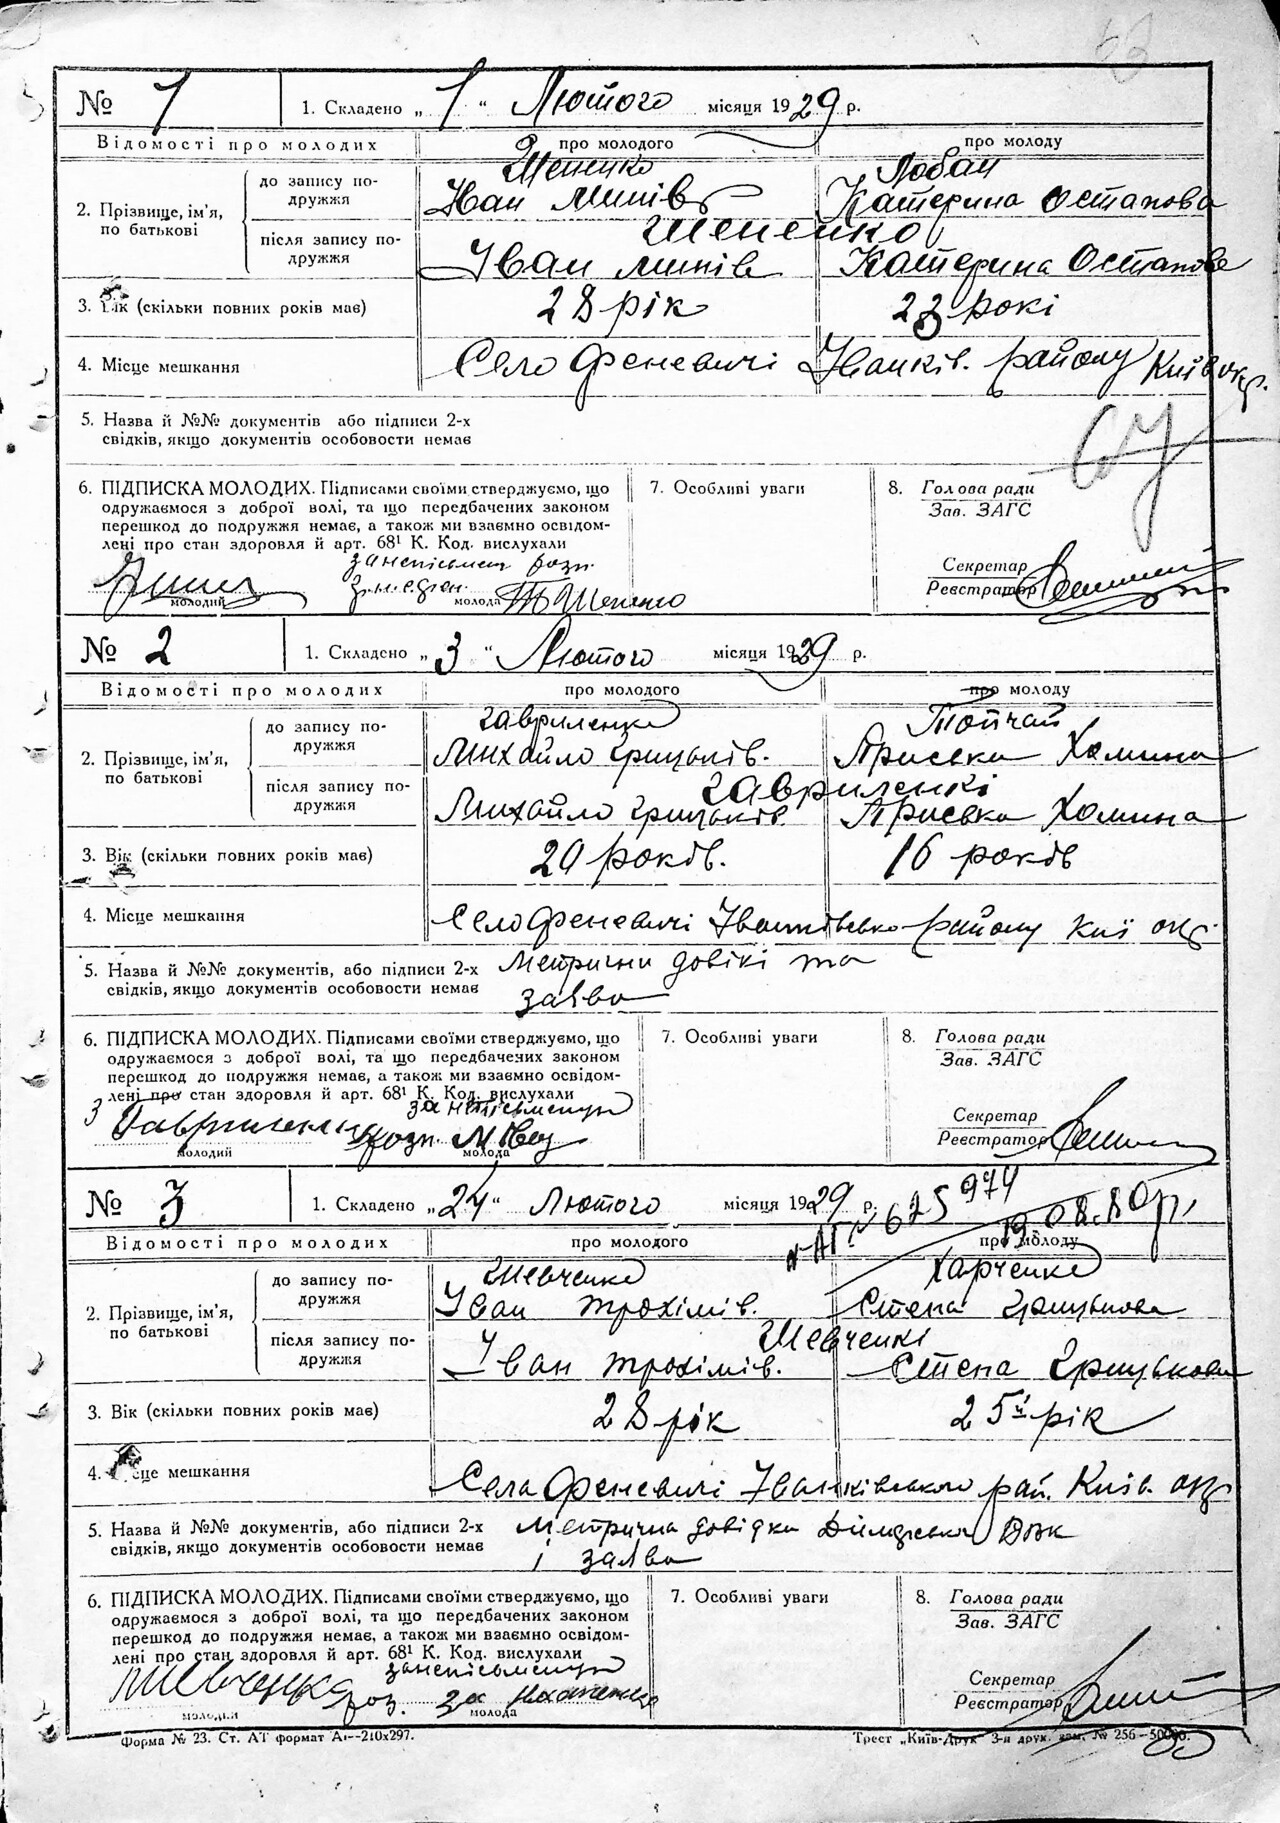 63
№ 1 1. Складено „ 1 “ Лютого місяця 1929 р.
Відомості про молодих про молодого про молоду
Шепенко Лобан
до запису подружжя Іван Минів Катерина Остапова
2. Прізвище, ім'я, по батькові
Шепенко
після запису подружжя Іван Минів Катерина Остапова
3. Вік (скільки повних років має) 28 рік 23 рокі
4. Місце мешкання Село Феневичі Іванків. району Київ окр.
5. Назва й №№ документів або підписи 2-х
свідків, якщо документів особовости немає
6. ПІДПИСКА МОЛОДИХ. Підписами своїми стверджуємо, що 7. Особливі уваги 8. Голова ради
одружаємося з доброї волі, та що передбачених законом Зав. ЗАГС
перешкод до подружжя немає, а також ми взаємно освідом-
лені про стан здоровля й арт. 68¹ К. Код. вислухали
Секретар
Реєстратор
молодий молода
№ 2 1. Складено „ 3 “ Лютого місяця 1929 р.
Відомості про молодих про молодого про молоду
Гавриленко Топчай
до запису подружжя Михайло Грицьків. Приська Хомина
2. Прізвище, ім'я, по батькові
Гавриленкі
після запису подружжя Михайло Грицьків. Приська Хомина
3. Вік (скільки повних років має) 20 років. 16 років
4. Місце мешкання Село Феневичі Іванківсько району Киї окр.
5. Назва й №№ документів, або підписи 2-х Метрични довікі та
свідків, якщо документів особовости немає заява
6. ПІДПИСКА МОЛОДИХ. Підписами своїми стверджуємо, що 7. Особливі уваги 8. Голова ради
одружаємося з доброї волі, та що передбачених законом Зав. ЗАГС
перешкод до подружжя немає, а також ми взаємно освідом-
лені про стан здоровля й арт. 68¹ К. Код. вислухали
Секретар
Гавриленко Реєстратор
молодий молода
№ 3 1. Складено „ 24 “ Лютого місяця 1929 р.
№ 625974
19.08.80р.
Відомості про молодих про молодого про молоду
Шевченко Харченко
до запису подружжя Іван Трохімів. Степа Грицькова
2. Прізвище, ім'я, по батькові
Шевченкі
після запису подружжя Іван Трохімів. Степа Грицькова
3. Вік (скільки повних років має) 28 рік 25й рік
4. Місце мешкання Села Феневичі Іванківського рай. Київ. окр
5. Назва й №№ документів, або підписи 2-х Метрична довідка
свідків, якщо документів особовости немає і заява
6. ПІДПИСКА МОЛОДИХ. Підписами своїми стверджуємо, що 7. Особливі уваги 8. Голова ради
одружаємося з доброї волі, та що передбачених законом Зав. ЗАГС
перешкод до подружжя немає, а також ми взаємно освідом-
лені про стан здоровля й арт. 68¹ К. Код. вислухали
Секретар
Шевченко Реєстратор
молодий молода
Форма № 23. Ст. АТ формат А₁—210х297. Трест „Київ-Друк“ 3-я друк. зам. № 256—50000.